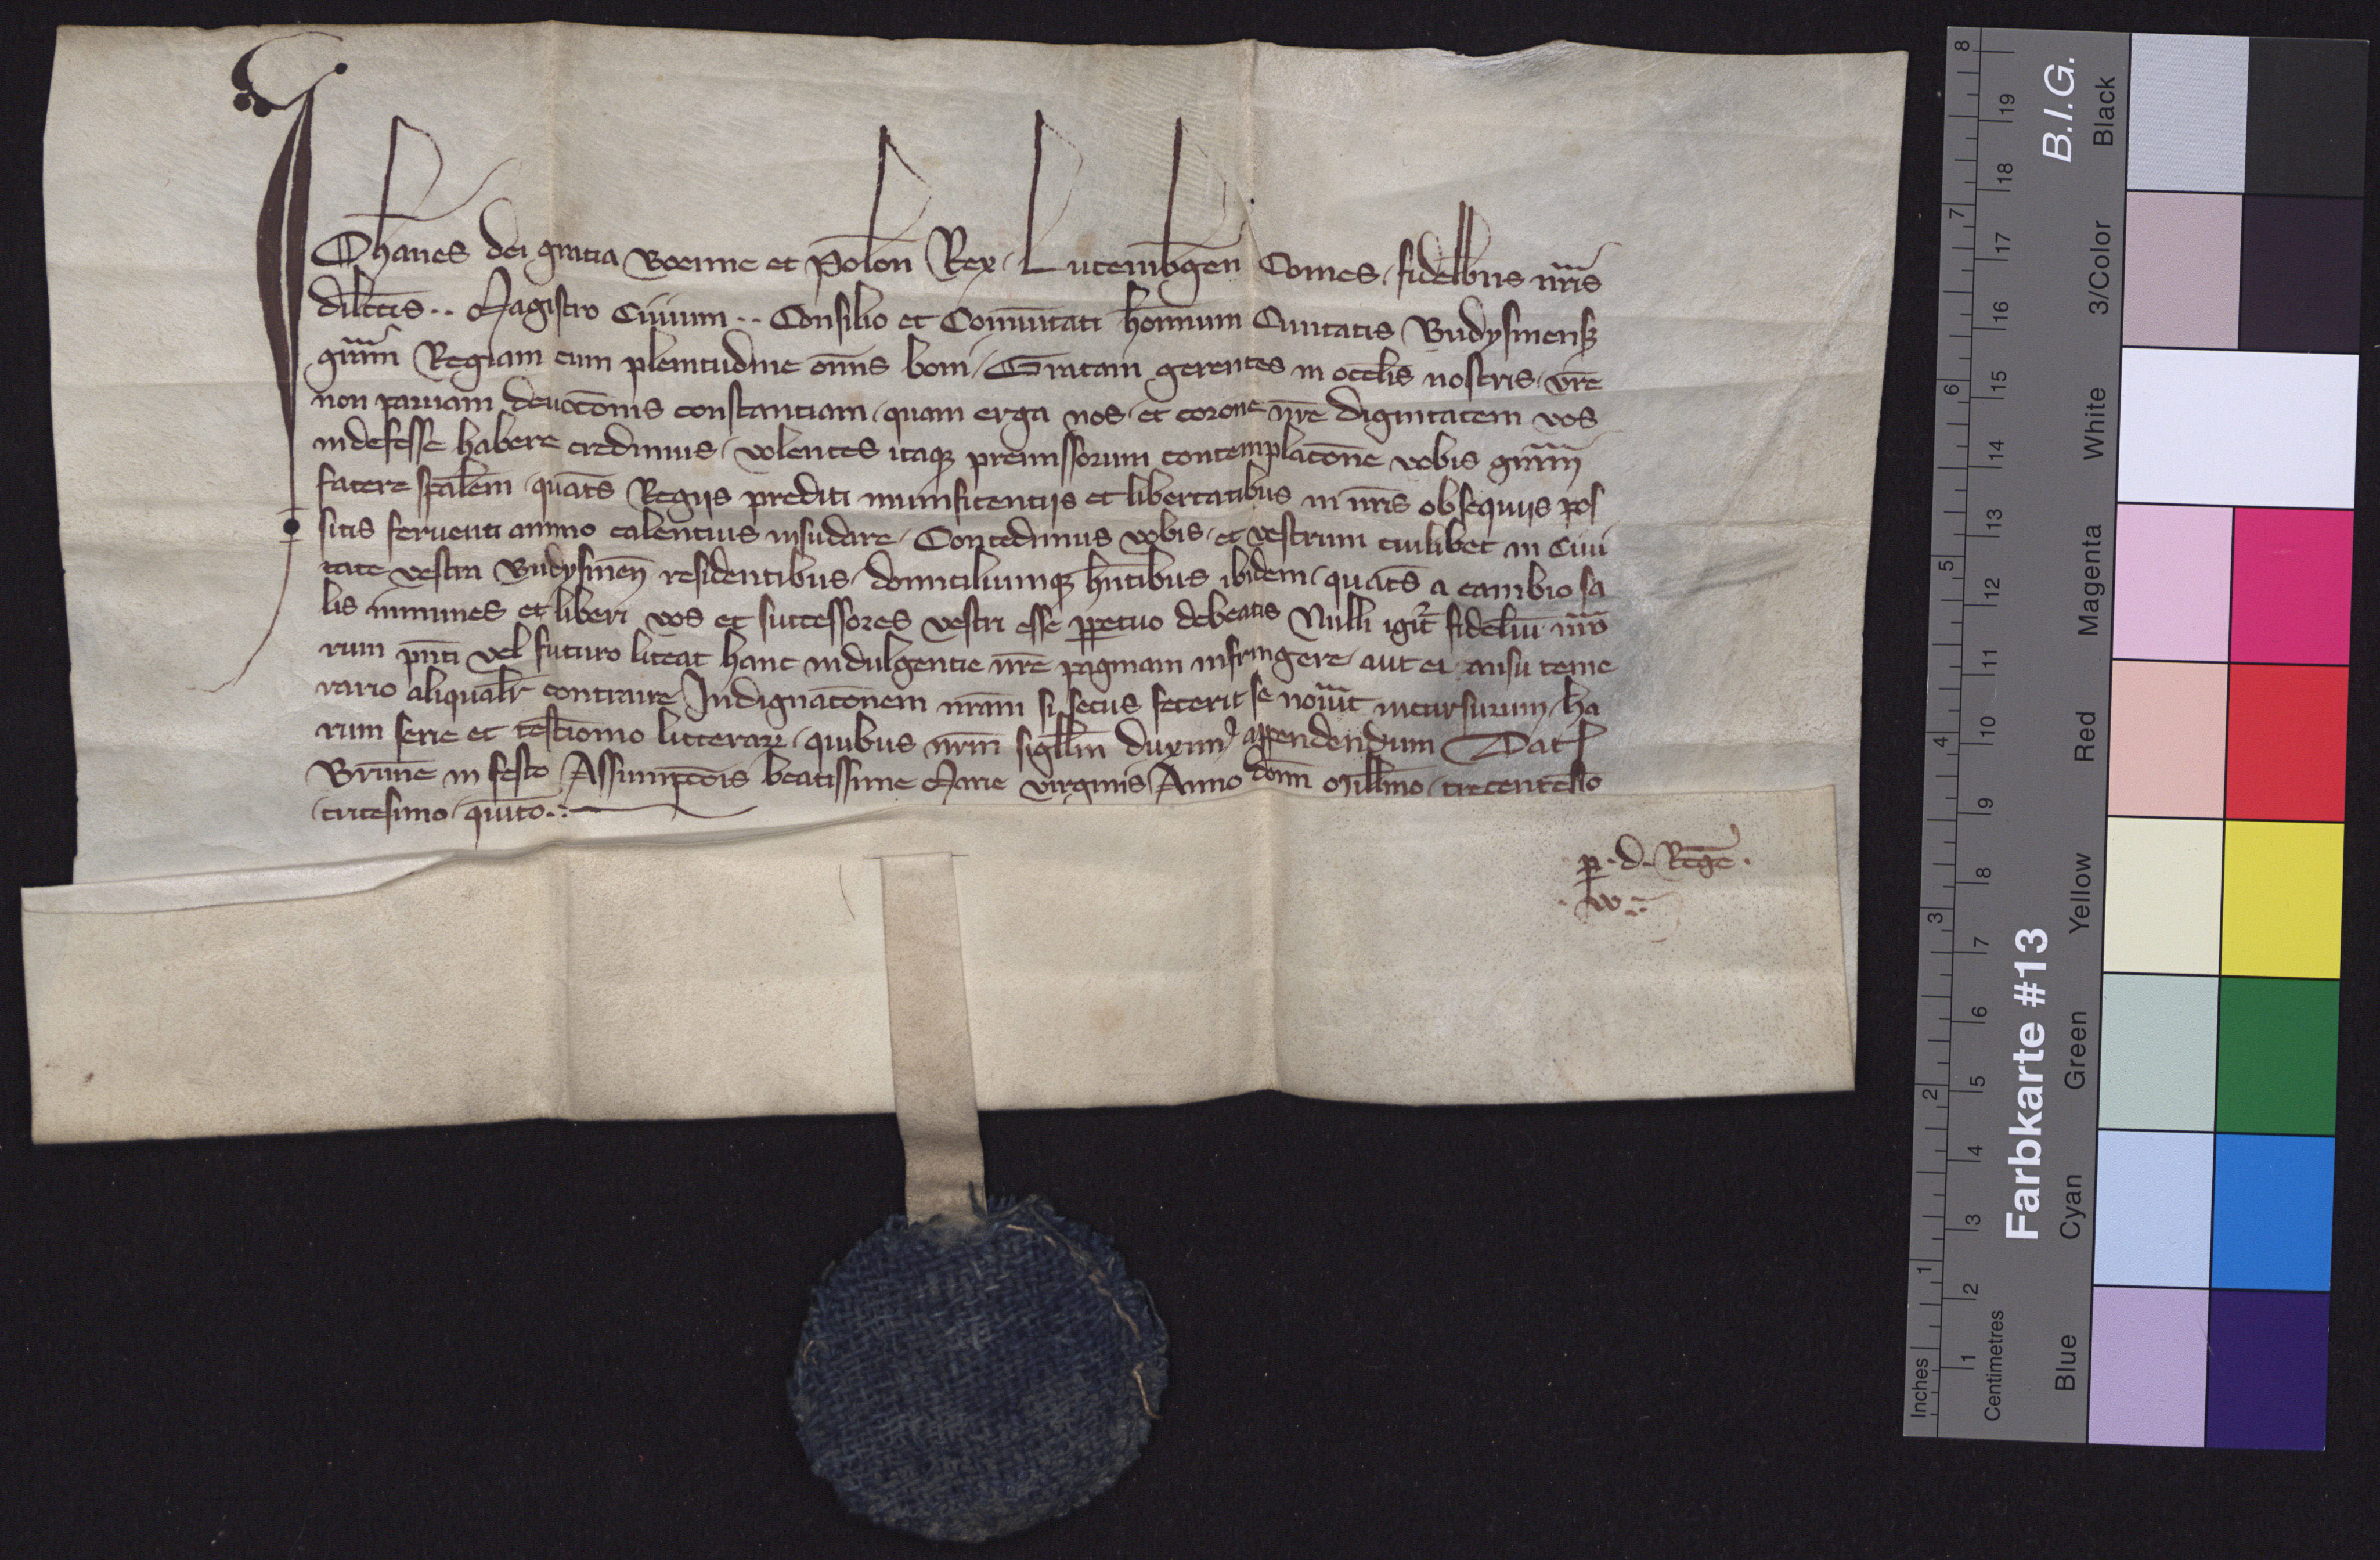 Johānes dei gratia Boemie et Polon̄ Rex / Lucemb̄gen̄ Comes / fidelibus nr̄is
dilc̄tis .. Magistro Ciuium .. Consilio et Com̄unitati hom̄inum Ciuitatis Budysinensꝫ
gr̄am Regiam cum plenitudine om̄is boni / Gratam gerentes in oc̄clis nostris / vr̄e
non paruam deuoc̄onis constanciam / quam erga nos / et corone nr̄e dignitatem vos
indefesse habere credimus / volentes itaqꝫ premissorum contemplac̄one vobis gr̄am
facere sp̄alem / quat̄s Regijs prediti munificencijs et libertatibus in nr̄is obsequijs pos
sitis feruenti animo calencius insudare / Concedimus vobis / et vestrum cuilibet in Ciui
tate vestra Budysinen̄ residentibus / domiciliumqꝫ hn̄tibus ibidem / quat̄s a cambio sa
lis immunes et liberi vos et successores vestri esse ꝑpetuo debeatis Nulli igit̄ fideliū nr̄o
rum pn̄ti vel futuro liceat hanc indulgencie nr̄e paginam infringere / aut ei ausu teme
rario aliqualr̄ contraire Indignac̄onem nr̄am si secus fecerit se nou̇it incursurum / ha
rum serie et testīonio litterarꝝ / quibus nr̄m sigillm̄ duximꝰ appendendum Dat̄
Brun̄e in festo Assumpc̄ois beatissime Marie virginis Anno domī Millīmo / trecentesīo
tricesimo / quīto .:
ꝑ . d . Regē .
. w .:
8
7
6
5
4
3
2
1
Inches
19
18
17
16
15
14
13
12
11
10
9
8
7
6
5
4
3
2
1
Centimetres
B.I.G.
Farbkarte #13
Black
3/Color
White
Magenta
Red
Yellow
Green
Cyan
Blue